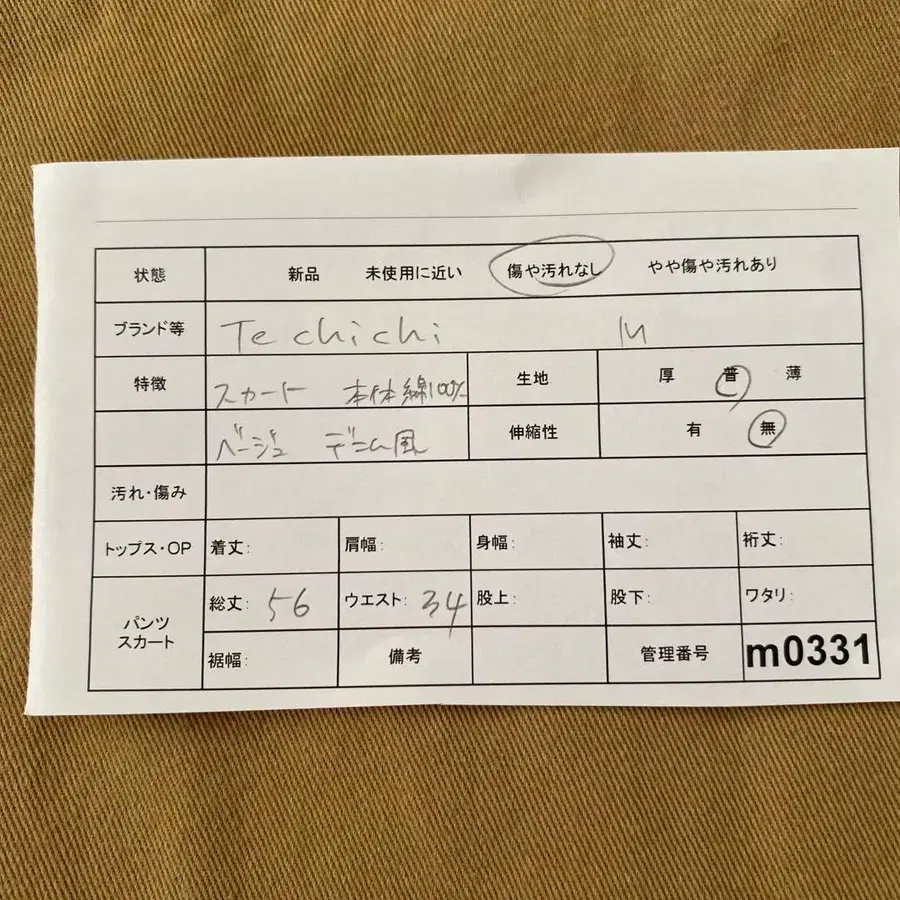 状態 新品 未使用に近い 傷や汚れなし やや傷や汚れあり
ブランド等 Te chichi M
特徴 スカート 本体綿100% 生地 厚 普 薄
ベージュ デニム風 伸縮性 有 無
汚れ・傷み
トップス・OP 着丈: 肩幅: 身幅: 袖丈: 裄丈:
パンツ スカート 総丈: 56 ウエスト: 34 股上: 股下: ワタリ:
裾幅: 備考 管理番号 m0331